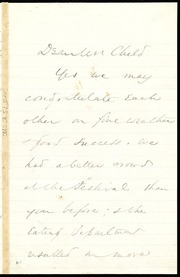 Dear Mr Child
Yes we may
congratulate each
other on fine weather
& good success. We
had a better crowd
at the Festival than
you before; & the
eating department
resulted in more